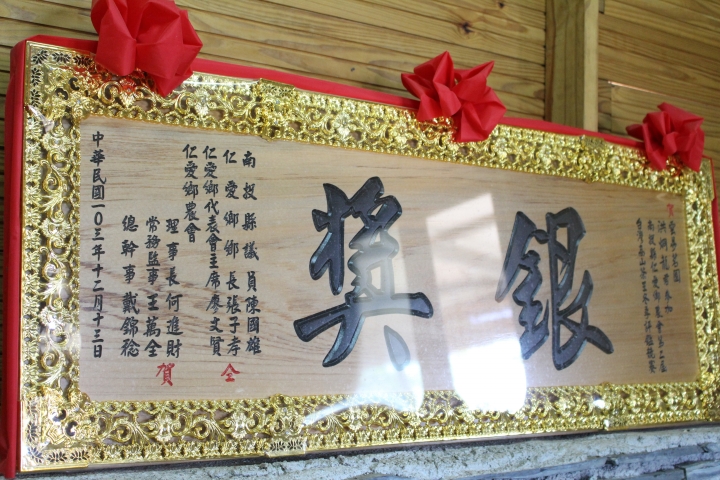 賀
茶園
南投縣仁愛鄉農會第二屆
銀獎
南投縣議員陳國雄
仁愛鄉鄉長張子孝
仁愛鄉代表會主席廖文賢
仝
仁愛鄉農會
理事長何進財
常務監事王萬全
總幹事戴錦稔
賀
中華民國一○三年十二月十三日